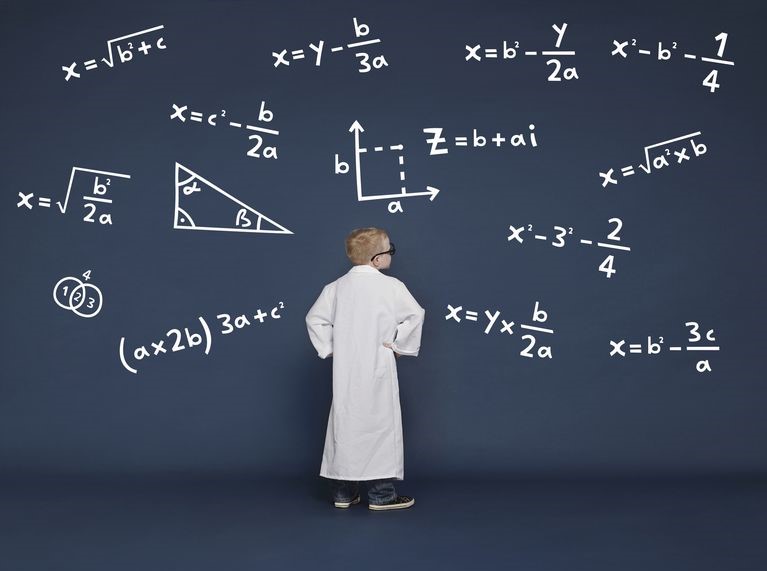 x = √(b² + c)
x = y − b/3a
x = b² − y/2a
x² − b² − 1/4
x = c² − b/2a
b
a
Z = b + ai
x = √(a² × b)
x = √(b²/2a)
α
β
x² − 3² − 2/4
4
1 2 3
(a × 2b) 3a + c²
x = y × b/2a
x = b² − 3c/a